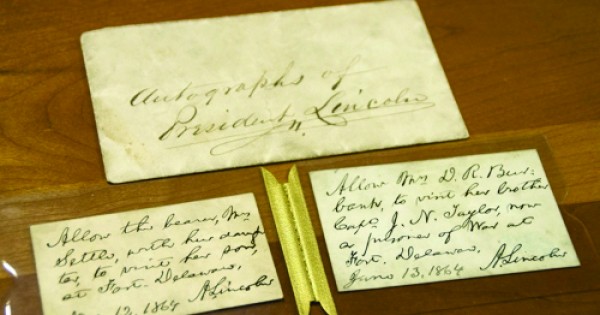 Autographs of
President Lincoln
Allow the bearer, Mrs
Settle, with her daugh
ter, to visit her son,
at Fort. Delaware,
12, 1864 A. Lincoln
Allow Mrs D. R. Bur=
bank, to visit her brother
Capt. J. N. Taylor, now
a prisoner of War at
Fort. Delaware,
June 13, 1864 A. Lincoln